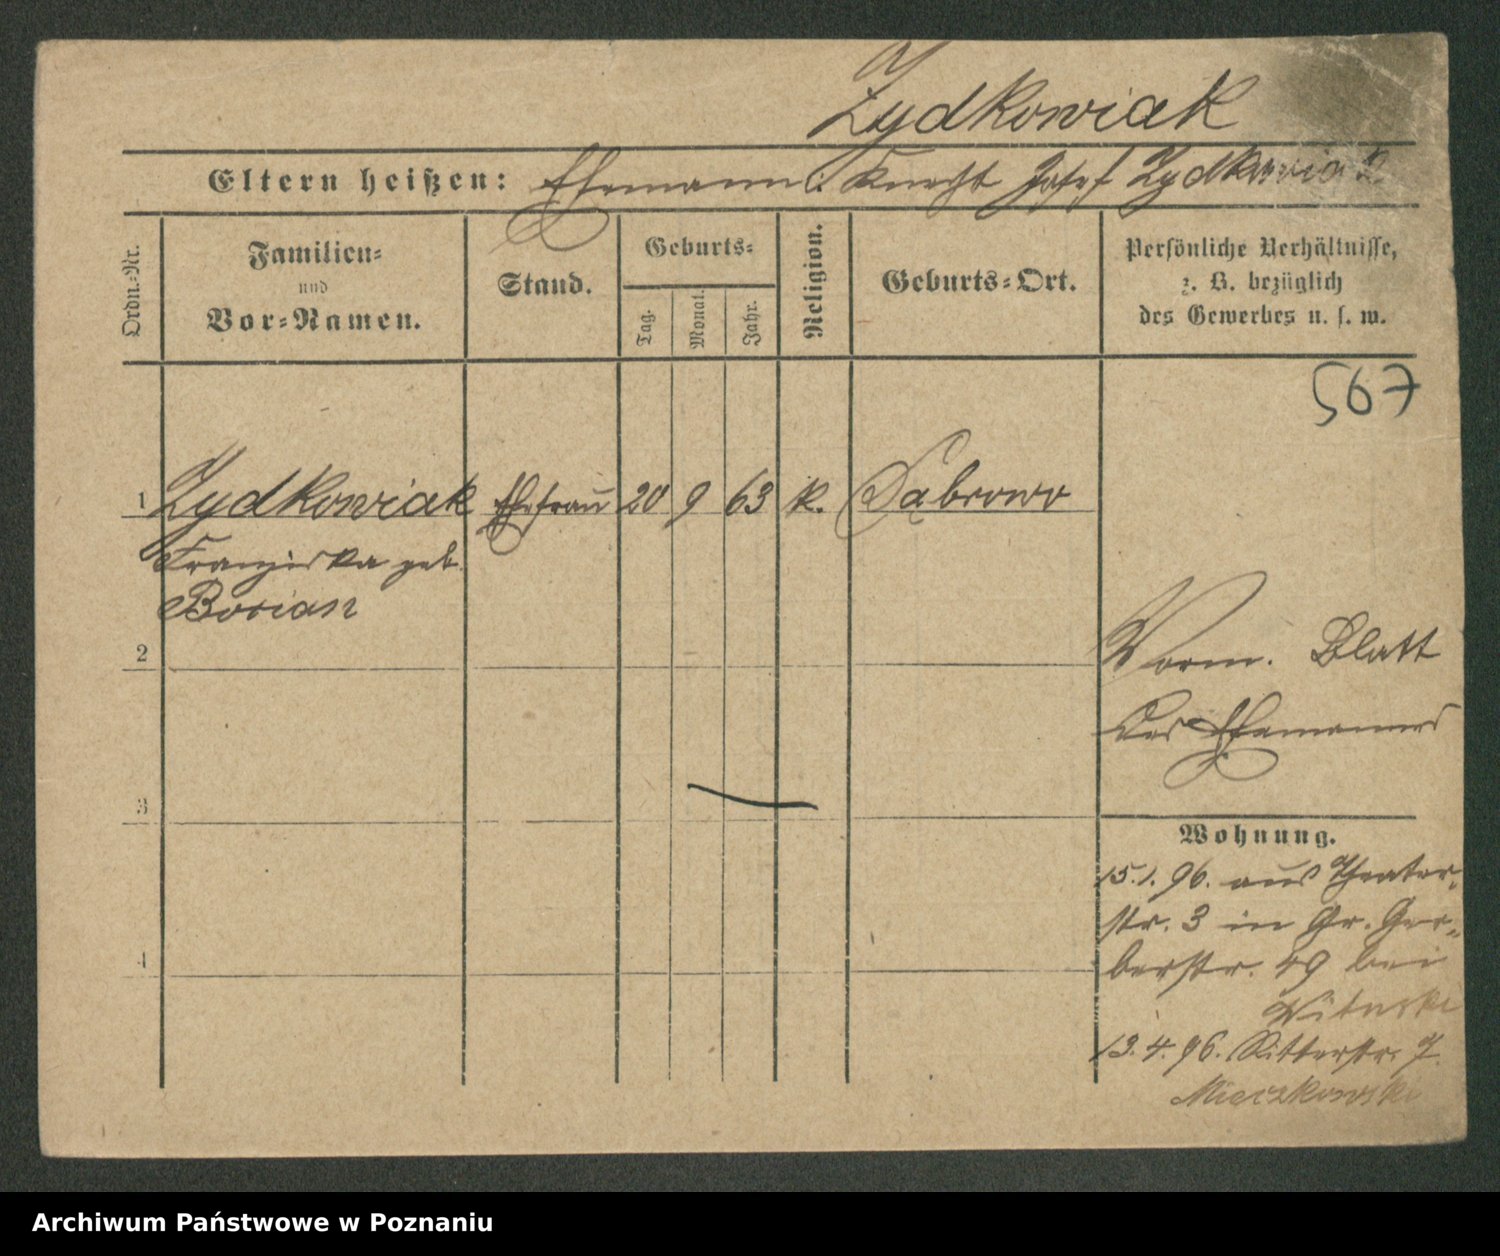 Zydkowiak
Eltern heißen: Ehemann: Knecht Josef Zydkowiak
Ordn.-Nr.
Familien-
und
Vor-Namen.
Stand.
Geburts-
Tag.
Monat.
Jahr.
Religion.
Geburts-Ort.
Persönliche Verhältnisse,
z. B. bezüglich
des Gewerbes u. s. w.
567
1 Zydkowiak Ehefrau 20 9 63 k. Dąbrowo
Franziska geb.
Borian
2
Vorm. Blatt
des Ehemannes
3
Wohnung.
15.1.96. aus Theater-
str. 3 in Gr. Ger-
berstr. 49 bei
4
13.4.96. Ritterstr. 7.
Mieczkowski
Archiwum Państwowe w Poznaniu